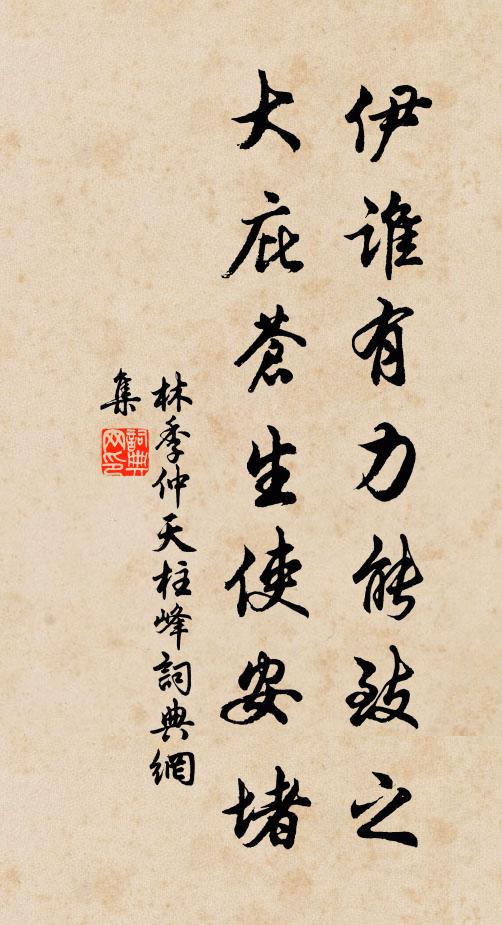 伊誰有力能致之
大庇蒼生使安堵
林季仲天柱峰詞典網
集
詞典網印